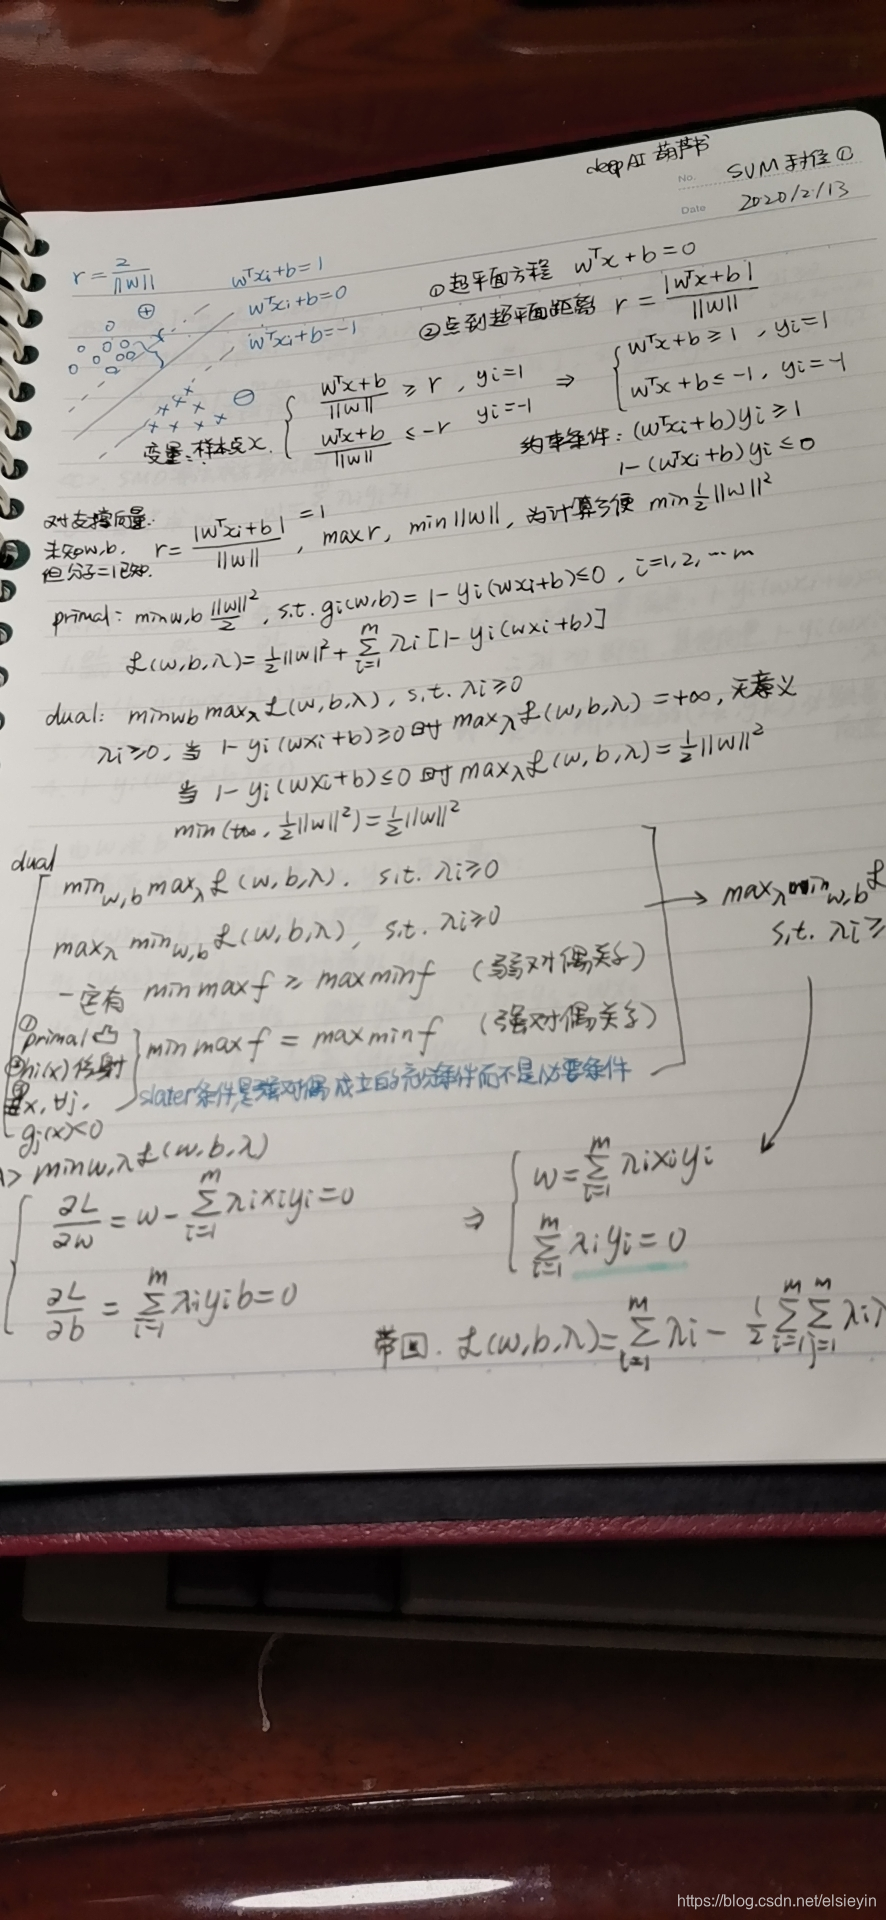 deep AI 葫芦书
No. SVM手推①
Date 2020/2/13
r = 2/||w||
wᵀxi+b=1
wᵀxi+b=0
wᵀxi+b=-1
⊕
⊖
①超平面方程 wᵀx+b=0
②点到超平面距离 r = |wᵀx+b|/||w||
变量:样本点x.
{ (wᵀx+b)/||w|| ≥ r, yi=1 ⇒ { wᵀx+b≥1, yi=1
(wᵀx+b)/||w|| ≤ -r yi=-1 wᵀx+b≤-1, yi=-1
约束条件: (wᵀxi+b)yi≥1
1-(wᵀxi+b)yi≤0
对支撑向量.
未知w,b.
但分子=1已知.
r = |wᵀxi+b|/||w|| =1, max r, min||w||, 为计算方便 min ½||w||²
primal: min w,b ||w||²/2, s.t. gi(w,b)=1-yi(wxi+b)≤0, i=1,2,…m
ℒ(w,b,λ)=½||w||²+∑ᵢ₌₁ᵐ λi[1-yi(wxi+b)]
dual: min wb maxλ ℒ(w,b,λ), s.t. λi≥0
λi≥0, 当 1-yi(wxi+b)≥0时 maxλ ℒ(w,b,λ)=+∞, 无意义
当 1-yi(wxi+b)≤0时 maxλ ℒ(w,b,λ)=½||w||²
min(+∞, ½||w||²)=½||w||²
dual
min w,b maxλ ℒ(w,b,λ). s.t. λi≥0
→ maxλ min w,b ℒ
s.t. λi≥
maxλ min w,b ℒ(w,b,λ), s.t. λi≥0
一定有 min max f ≥ max min f (弱对偶关系)
①primal凸
②hi(x)仿射
③∃x, ∀j,
gj(x)<0
min max f = max min f (强对偶关系)
slater条件是强对偶成立的充分条件而不是必要条件
> min w,λ ℒ(w,b,λ)
{ ∂L/∂w = w-∑ᵢ₌₁ᵐ λixiyi=0 ⇒ { w=∑ᵢ₌₁ᵐ λixiyi
∂L/∂b = ∑ᵢ₌₁ᵐ λiyib=0 ∑ᵢ₌₁ᵐ λiyi=0
带回. ℒ(w,b,λ)=∑ᵢ₌₁ᵐ λi - ½∑ᵢ₌₁ᵐ∑ⱼ₌₁ᵐ λiλ
https://blog.csdn.net/elsieyin